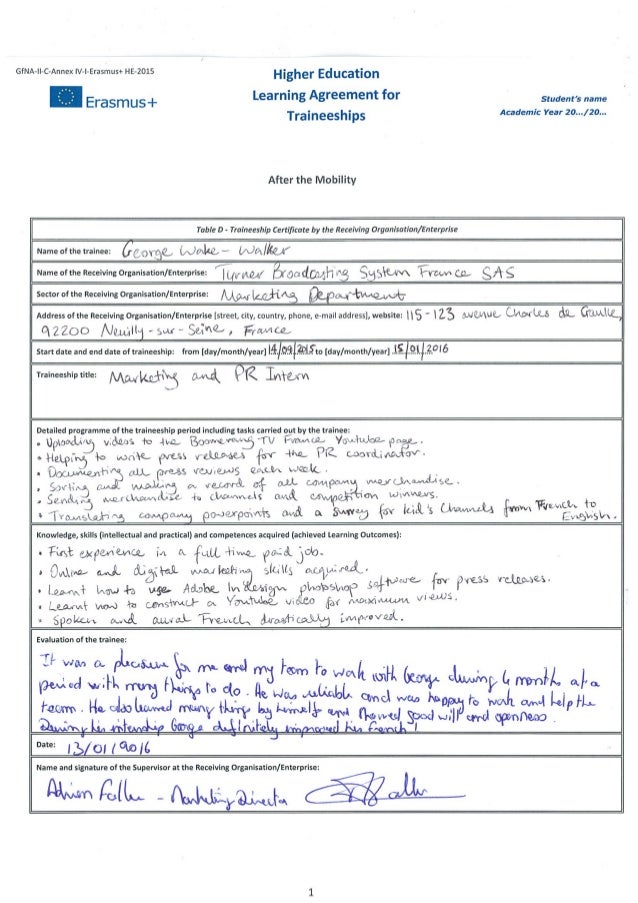 GfNA-II-C-Annex IV-I-Erasmus+ HE-2015
Erasmus+
Higher Education
Learning Agreement for
Traineeships
Student's name
Academic Year 20.../20...
After the Mobility
Table D - Traineeship Certificate by the Receiving Organisation/Enterprise
Name of the trainee: George Wake-Walker
Name of the Receiving Organisation/Enterprise: Turner Broadcasting System France SAS
Sector of the Receiving Organisation/Enterprise: Marketing Department
Address of the Receiving Organisation/Enterprise [street, city, country, phone, e-mail address], website: 115-123 avenue Charles de Gaulle,
92200 Neuilly-sur-Seine, France
Start date and end date of traineeship: from [day/month/year] 14/09/2015 to [day/month/year] 15/01/2016
Traineeship title: Marketing and PR Intern
Detailed programme of the traineeship period including tasks carried out by the trainee:
• Uploading videos to the Boomerang TV France Youtube page.
• Helping to write press releases for the PR coordinator.
• Documenting all press reviews each week.
• Sorting and making a record of all company merchandise.
• Sending merchandise to channels and competition winners.
• Translating company powerpoints and a survey for kid's channels from French to
English.
Knowledge, skills (intellectual and practical) and competences acquired (achieved Learning Outcomes):
• First experience in a full time paid job.
• Online and digital marketing skills acquired.
• Learnt how to use Adobe In design photoshop software for press releases.
• Learnt how to construct a Youtube video for maximum views.
• Spoken and aural French drastically improved.
Evaluation of the trainee:
It was a pleasure for me and my team to work with George during 4 months at a
period with many things to do. He was reliable and was happy to work and help the
team. He also learned many things by himself and showed good will and openness.
During his internship George definitely improved his French!
Date: 13/01/2016
Name and signature of the Supervisor at the Receiving Organisation/Enterprise:
Adrien - Marketing Director
1